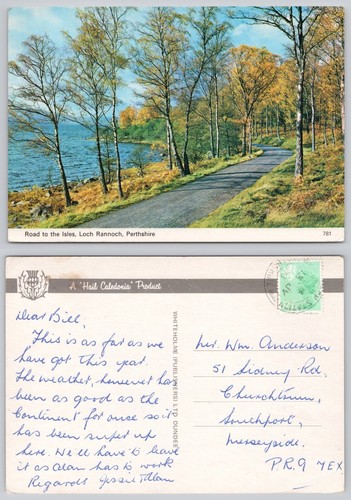 Road to the Isles, Loch Rannoch, Perthshire
781
A "Hail Caledonia" Product
WHITEHOLME (PUBLISHERS) LTD. DUNDEE
Dear Bill,
This is as far as we
have got this year.
The weather, however has
been as good as the
Continent for once so it
has been super up
here. We'll have to leave
it as Alan has to work
Regards Jessie + Alan
Mr. Wm. Anderson
51 Sidney Rd.
Churchtown,
Southport,
Merseyside.
PR9 7EX